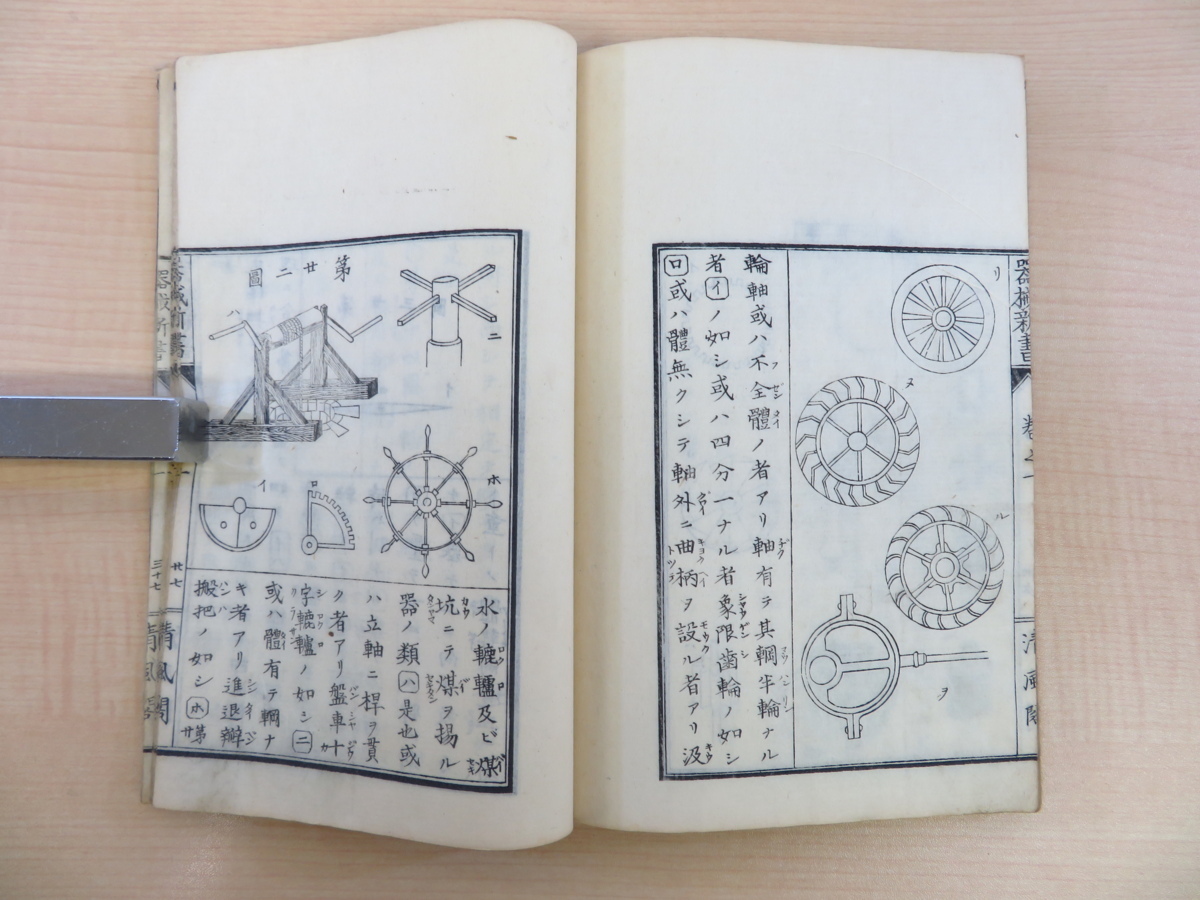 器械新書
卷之一
清風閣
リ
ヌ
ル
ヲ
輪軸或ハ不全體ノ者アリ軸有テ其輞半輪ナル
者イノ如シ或ハ四分一ナル者象限齒輪ノ如シ
ロ或ハ體無クシテ軸外ニ曲柄ヲ設ル者アリ汲
第廿二圖
ニ
ハ
ホ
ロ
イ
水ノ轆轤及ビ煤
坑ニテ煤ヲ揚ル
器ノ類ハ是也或
ハ立軸ニ桿ヲ貫
ク者アリ盤車十
字轆轤ノ如シニ
或ハ體有テ輞ナ
キ者アリ進退瓣
搬把ノ如シホ第廿
器械新書
廿七
清風閣
器械新書
三十七
清風閣